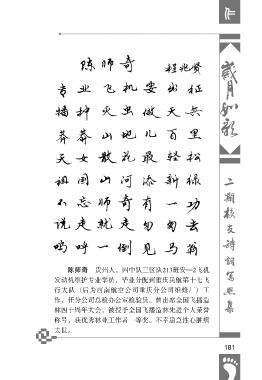 作
岁月如歌
二期校友诗词写照集
陈师奇
程兆贤
专业飞机要出征
播种灭虫做天兵
莽莽山地几百里
天女散花最轻松
祖国山河添新绿
不忘师奇有一功
说走就走匆匆去
呜呼一倒见马翁
陈师奇 贵州人。四中队三区队213班安—2飞机
发动机维护专业学员，毕业分配到重庆民航第十七飞
行大队（后为西南航空公司重庆分公司维修厂）工
作，任分公司总检办公室检验员。曾出席全国飞播造
林四十周年大会，被授予全国飞播造林先进个人荣誉
称号，获优秀林业工作者一等奖。不幸患急性心脏病
去世。
181